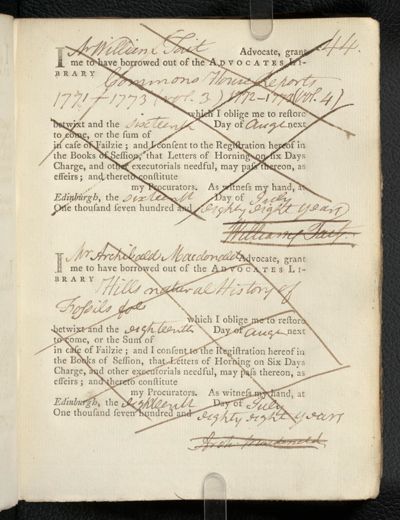 44.
I Mr William Tait Advocate, grant
me to have borrowed out of the ADVOCATES LI-
BRARY Commons House Reports
1771 1773 (vol. 3) 1772-1773 (vol. 4)
which I oblige me to restore
betwixt and the sixteenth Day of Augt next
to come, or the sum of
in case of Failzie; and I consent to the Registration hereof in
the Books of Session, that Letters of Horning on six Days
Charge, and other executorials needful, may pass thereon, as
effeirs; and thereto constitute
my Procurators. As witness my hand, at
Edinburgh, the sixteenth Day of July
One thousand seven hundred and eighty eight years
William Tait
I Mr Archibald Macdonald Advocate, grant
me to have borrowed out of the ADVOCATES LI-
BRARY Hills natural History of
Fossils fol
which I oblige me to restore
betwixt and the eighteenth Day of Augt next
to come, or the Sum of
in case of Failzie; and I consent to the Registration hereof in
the Books of Session, that Letters of Horning on Six Days
Charge, and other executorials needful, may pass thereon, as
effeirs; and thereto constitute
my Procurators. As witness my hand, at
Edinburgh, the eighteenth Day of July
One thousand seven hundred and eighty eight years
Arch Macdonald